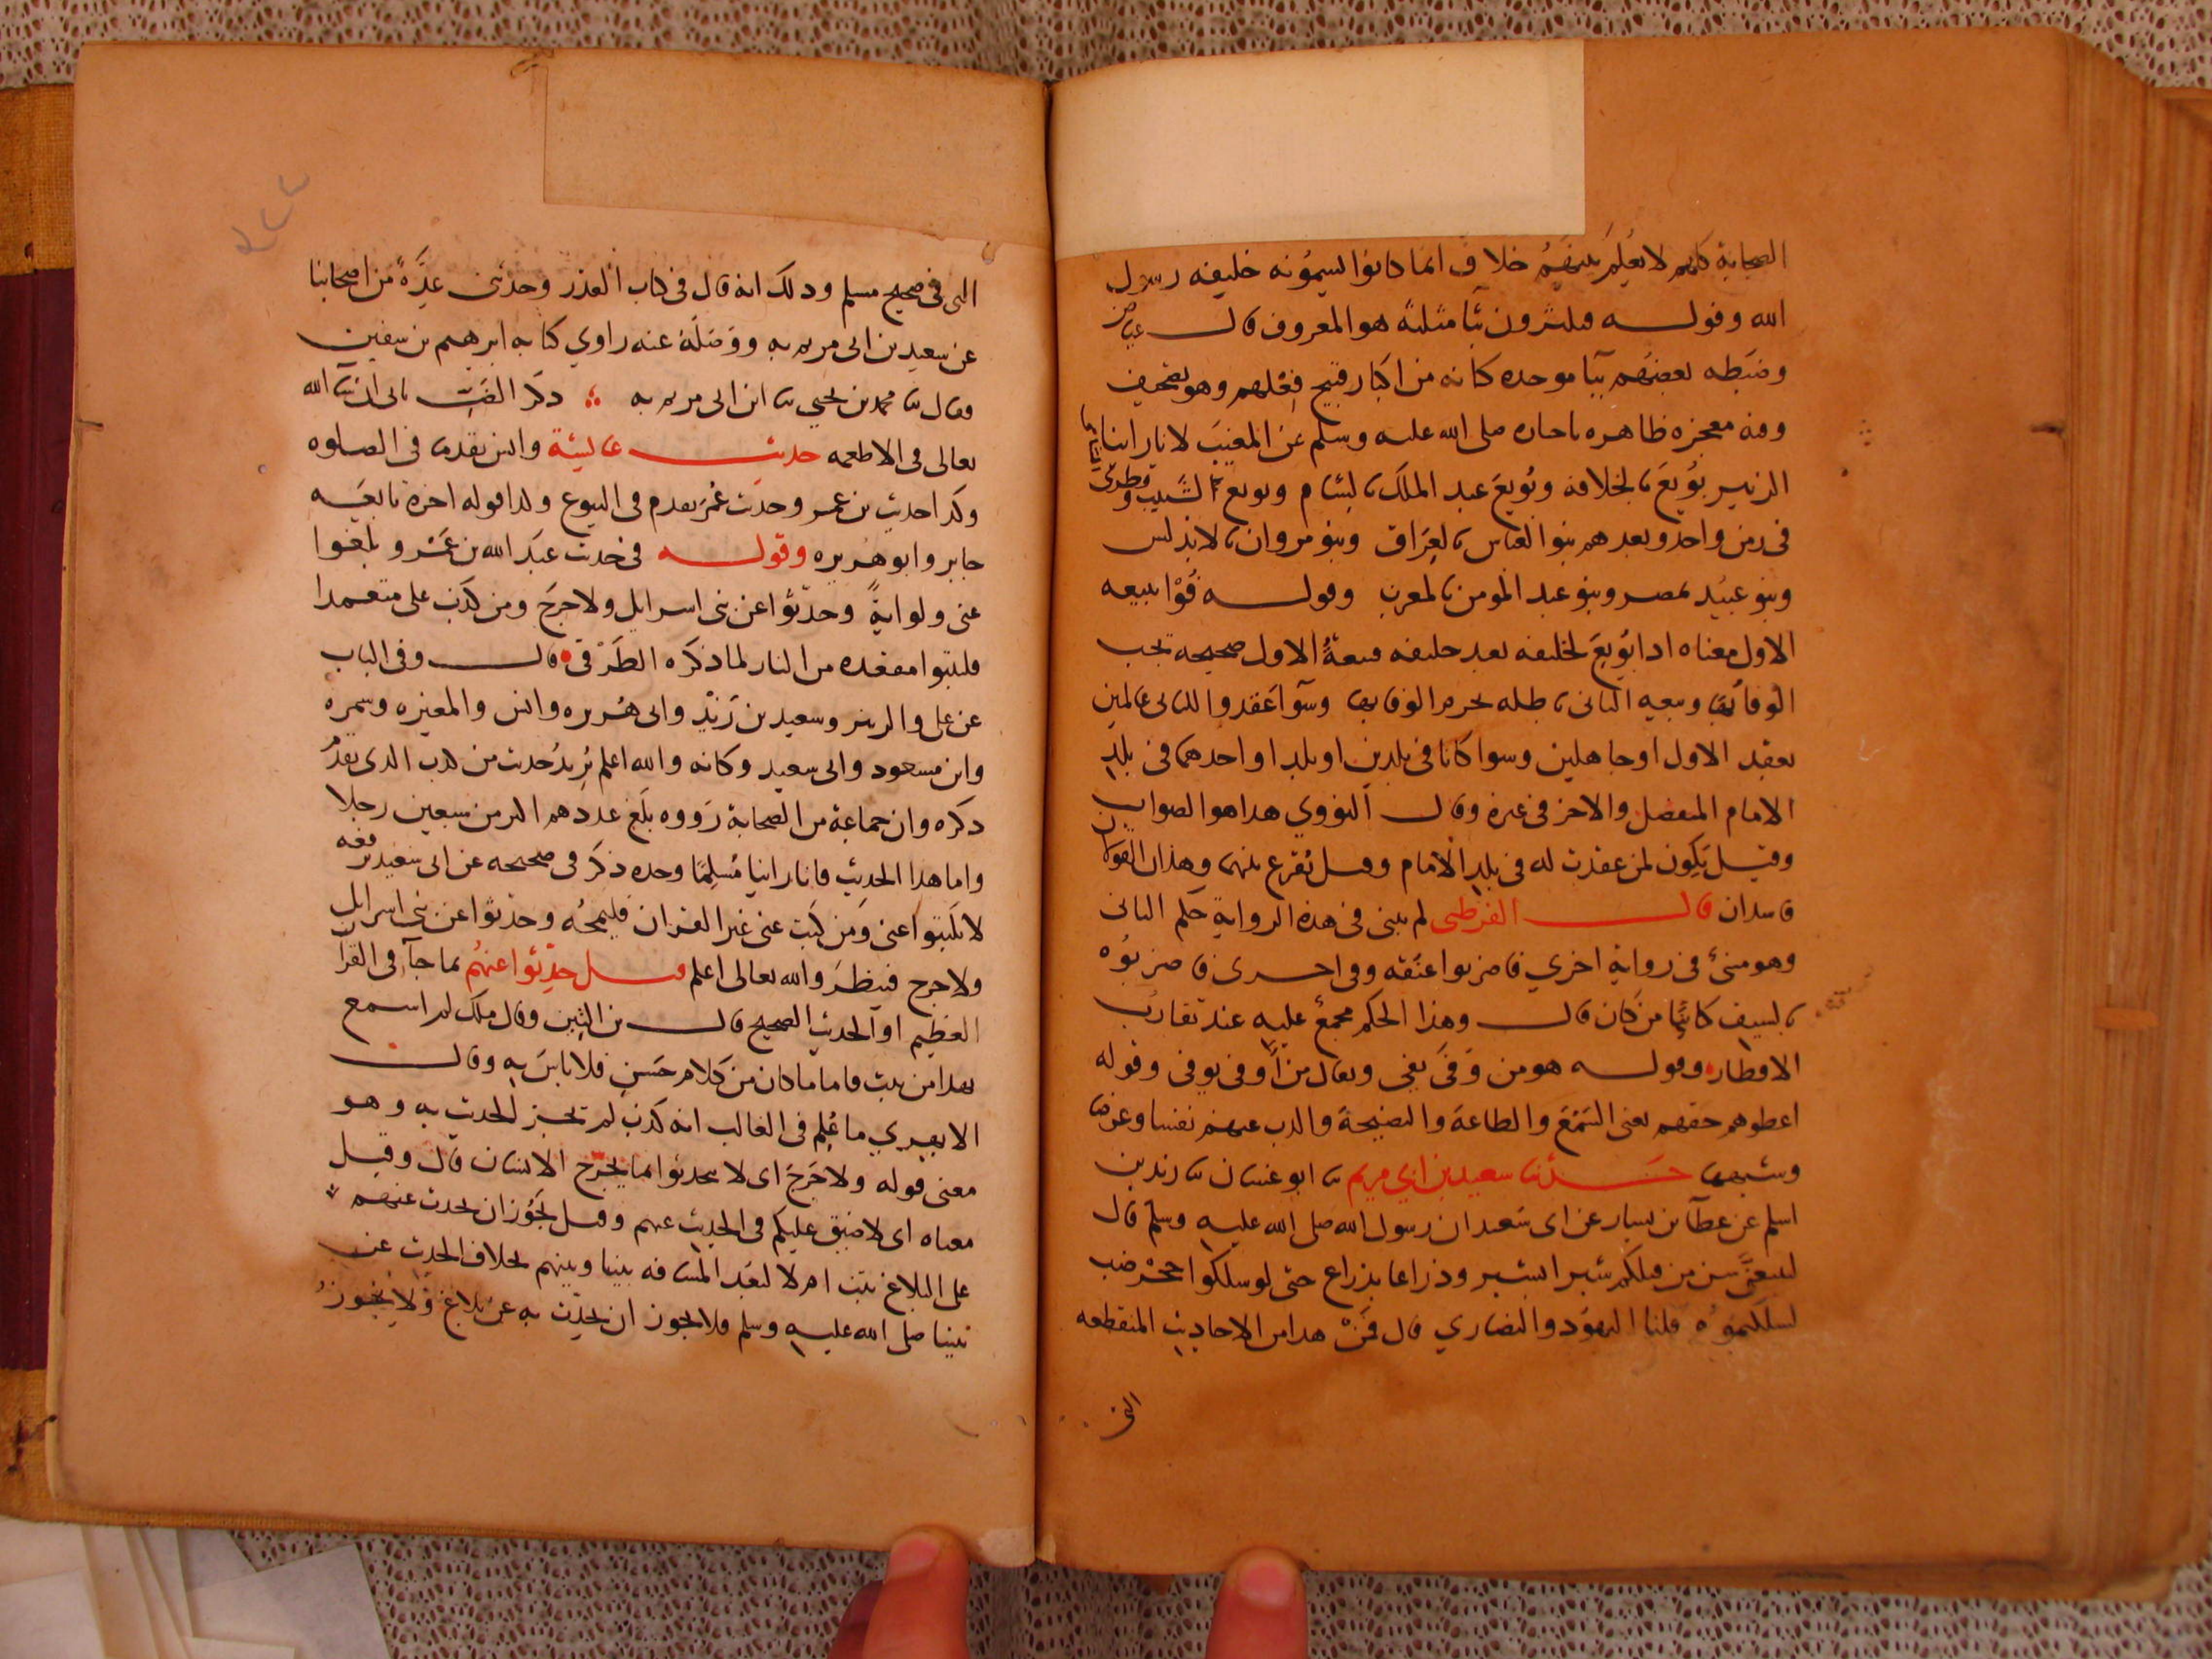 الصحابة كلهم لا يعلم بينهم خلاف انما كانوا يسمونه خليفه رسول
الله وقوله فيكثرون بثا مثلثة هو المعروف قال عياض
وضبطه بعضهم ببا موحده كانه من اكبار قبيح فعلهم وهو تصحيف
وفيه معجزه ظاهره باخباره صلى الله عليه وسلم عن المغيب لانا راينا
الزبير بويع بالخلافه وبويع عبد الملك بالشام وبويع
فى زمن واحد وبعدهم بنو العباس بالعراق وبنو مروان بالاندلس
وبنو عبيد بمصر وبنو عبد المومن بالمغرب وقوله فوا ببيعه
الاول معناه اذا بويع لخليفه بعد خليفه فبيعة الاول صحيحه يجب
الوفا بها وبيعه الثانى باطله يحرم الوفا بها وسوآ عقدوا للثانى عالمين
بعقد الاول او جاهلين وسوا كانا فى بلدين او بلد او احدهما فى بلد
الامام المنفصل والاخر فى غيره وقال النووي هذا هو الصواب
وقيل يكون لمن عقدت له فى بلد الامام وقيل يقرع بينهما وهذان القولان
فاسدان قال القرطبى لم يبين فى هذه الرواية حكم الثانى
وهو مبين فى رواية اخري فاضربوا عنقه وفى اخرى فاضربوه
بالسيف كائنا من كان قال وهذا الحكم مجمع عليه عند تقارب
الاقطار وقوله هو من وفى يفى ويقال من اوفى يوفى وقوله
اعطوهم حقهم يعنى السمع والطاعة والنصيحة والذب عنهم نفسا وعرضا
وشبهها حدثنا سعيد بن ابي مريم ثنا ابو غسان ثنا زيد بن
اسلم عن عطآ بن يسار عن ابى سعيد ان رسول الله صلى الله عليه وسلم قال
لتتبعن سنن من قبلكم شبرا بشبر وذراعا بذراع حتى لو سلكوا جحر ضب
لسلكتموه قلنا اليهود والنصاري قال فمن هذا من الاحاديث المنقطعه
التى
التى فى صحيح مسلم وذلك انه قال فى كتاب القدر وحدثنى عدة من اصحابنا
عن سعيد بن ابى مريم به ووصله عنه راوي كتابه ابرهيم بن سفين
فقال ثنا محمد بن يحيى ثنا ابن ابى مريم به ذكر الضب ياتى ان شا الله
تعالى فى الاطعمه حديث عايشة وانس تقدما فى الصلوه
وكذا حديث بن عمر وحديث عمر تقدم فى البيوع ولذا قوله اخره تابعه
جابر وابو هريره وقوله فى حديث عبد الله بن عمرو بلغوا
عنى ولو اية وحدثوا عن بنى اسرايل ولا حرج ومن كذب على متعمدا
فليتبوا مقعده من النار لما ذكره الطرقى قال وفى الباب
عن على والزبير وسعيد بن زيد وابى هريره وانس والمغيره وسمره
وابن مسعود وابى سعيد وكانه والله اعلم يريد حديث من كذب الذى تقدم
ذكره وان جماعة من الصحابة رووه بلغ عددهم اكثر من سبعين رجلا
واما هذا الحديث فانا راينا مسلما وحده ذكر فى صحيحه عن ابى سعيد رفعه
لا تكتبوا عنى ومن كتب عنى غير القران فليمحه وحدثوا عن بنى اسرايل
ولا حرج فينظر والله تعالى اعلم قيل حدثوا عنهم بما جآ فى القرآن
العظيم او الحديث الصحيح قال بن التين وقال ملك لم اسمع
بهذا من ثبت فاما ما كان من كلام حسن فلا باس به وقال
ما علم فى الغالب انه كذب لم يجز الحديث به وهو
معنى قوله ولا حرج اى لا تحدثوا بما يحرج الانسان قال وقيل
معناه اى لا ضيق عليكم فى الحديث عنهم وقيل يجوز ان يحدث عنهم
على البلاغ ثبت ام لا لبعد المسافه بيننا وبينهم بخلاف الحديث عن
نبينا صلى الله عليه وسلم فلا يجوز ان يحدث به عن بلاغ ولا يجوز